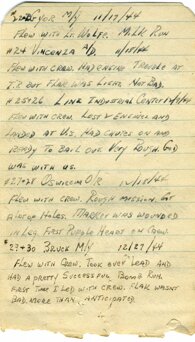 GYOR M/Y 11/17/44
FLEW WITH LT. WOLFE. MILK RUN
#24 VINCONZA M/O. 11/18/44
FLEW WITH CREW. HAD ENGINE TROUBLE AT
I.P. BUT FLAK WAS LIGHT. NOT BAD.
#25+26 LINZ INDUSTRIAL CENTER
FLEW WITH CREW. LOST 2 ENGINES AND
LANDED AT VIS. HAD CHUTES ON AND
READY TO BAIL OUT. VERY ROUGH. GOD
WAS WITH US.
OSWIECIM O/R
FLEW WITH CREW. ROUGH MISSION. GOT
HOLES. WAS WOUNDED
IN LEG. FAST PURPLE HEADS ON CREW.
BRUCK M/Y 12/27/44
FLEW WITH CREW. TOOK OVER LEAD AND
HAD A PRETTY SUCCESSFUL BOMB RUN.
FIRST TIME I LED WITH CREW. FLAK WASN'T
BAD. MORE THAN ANTICIPATED.